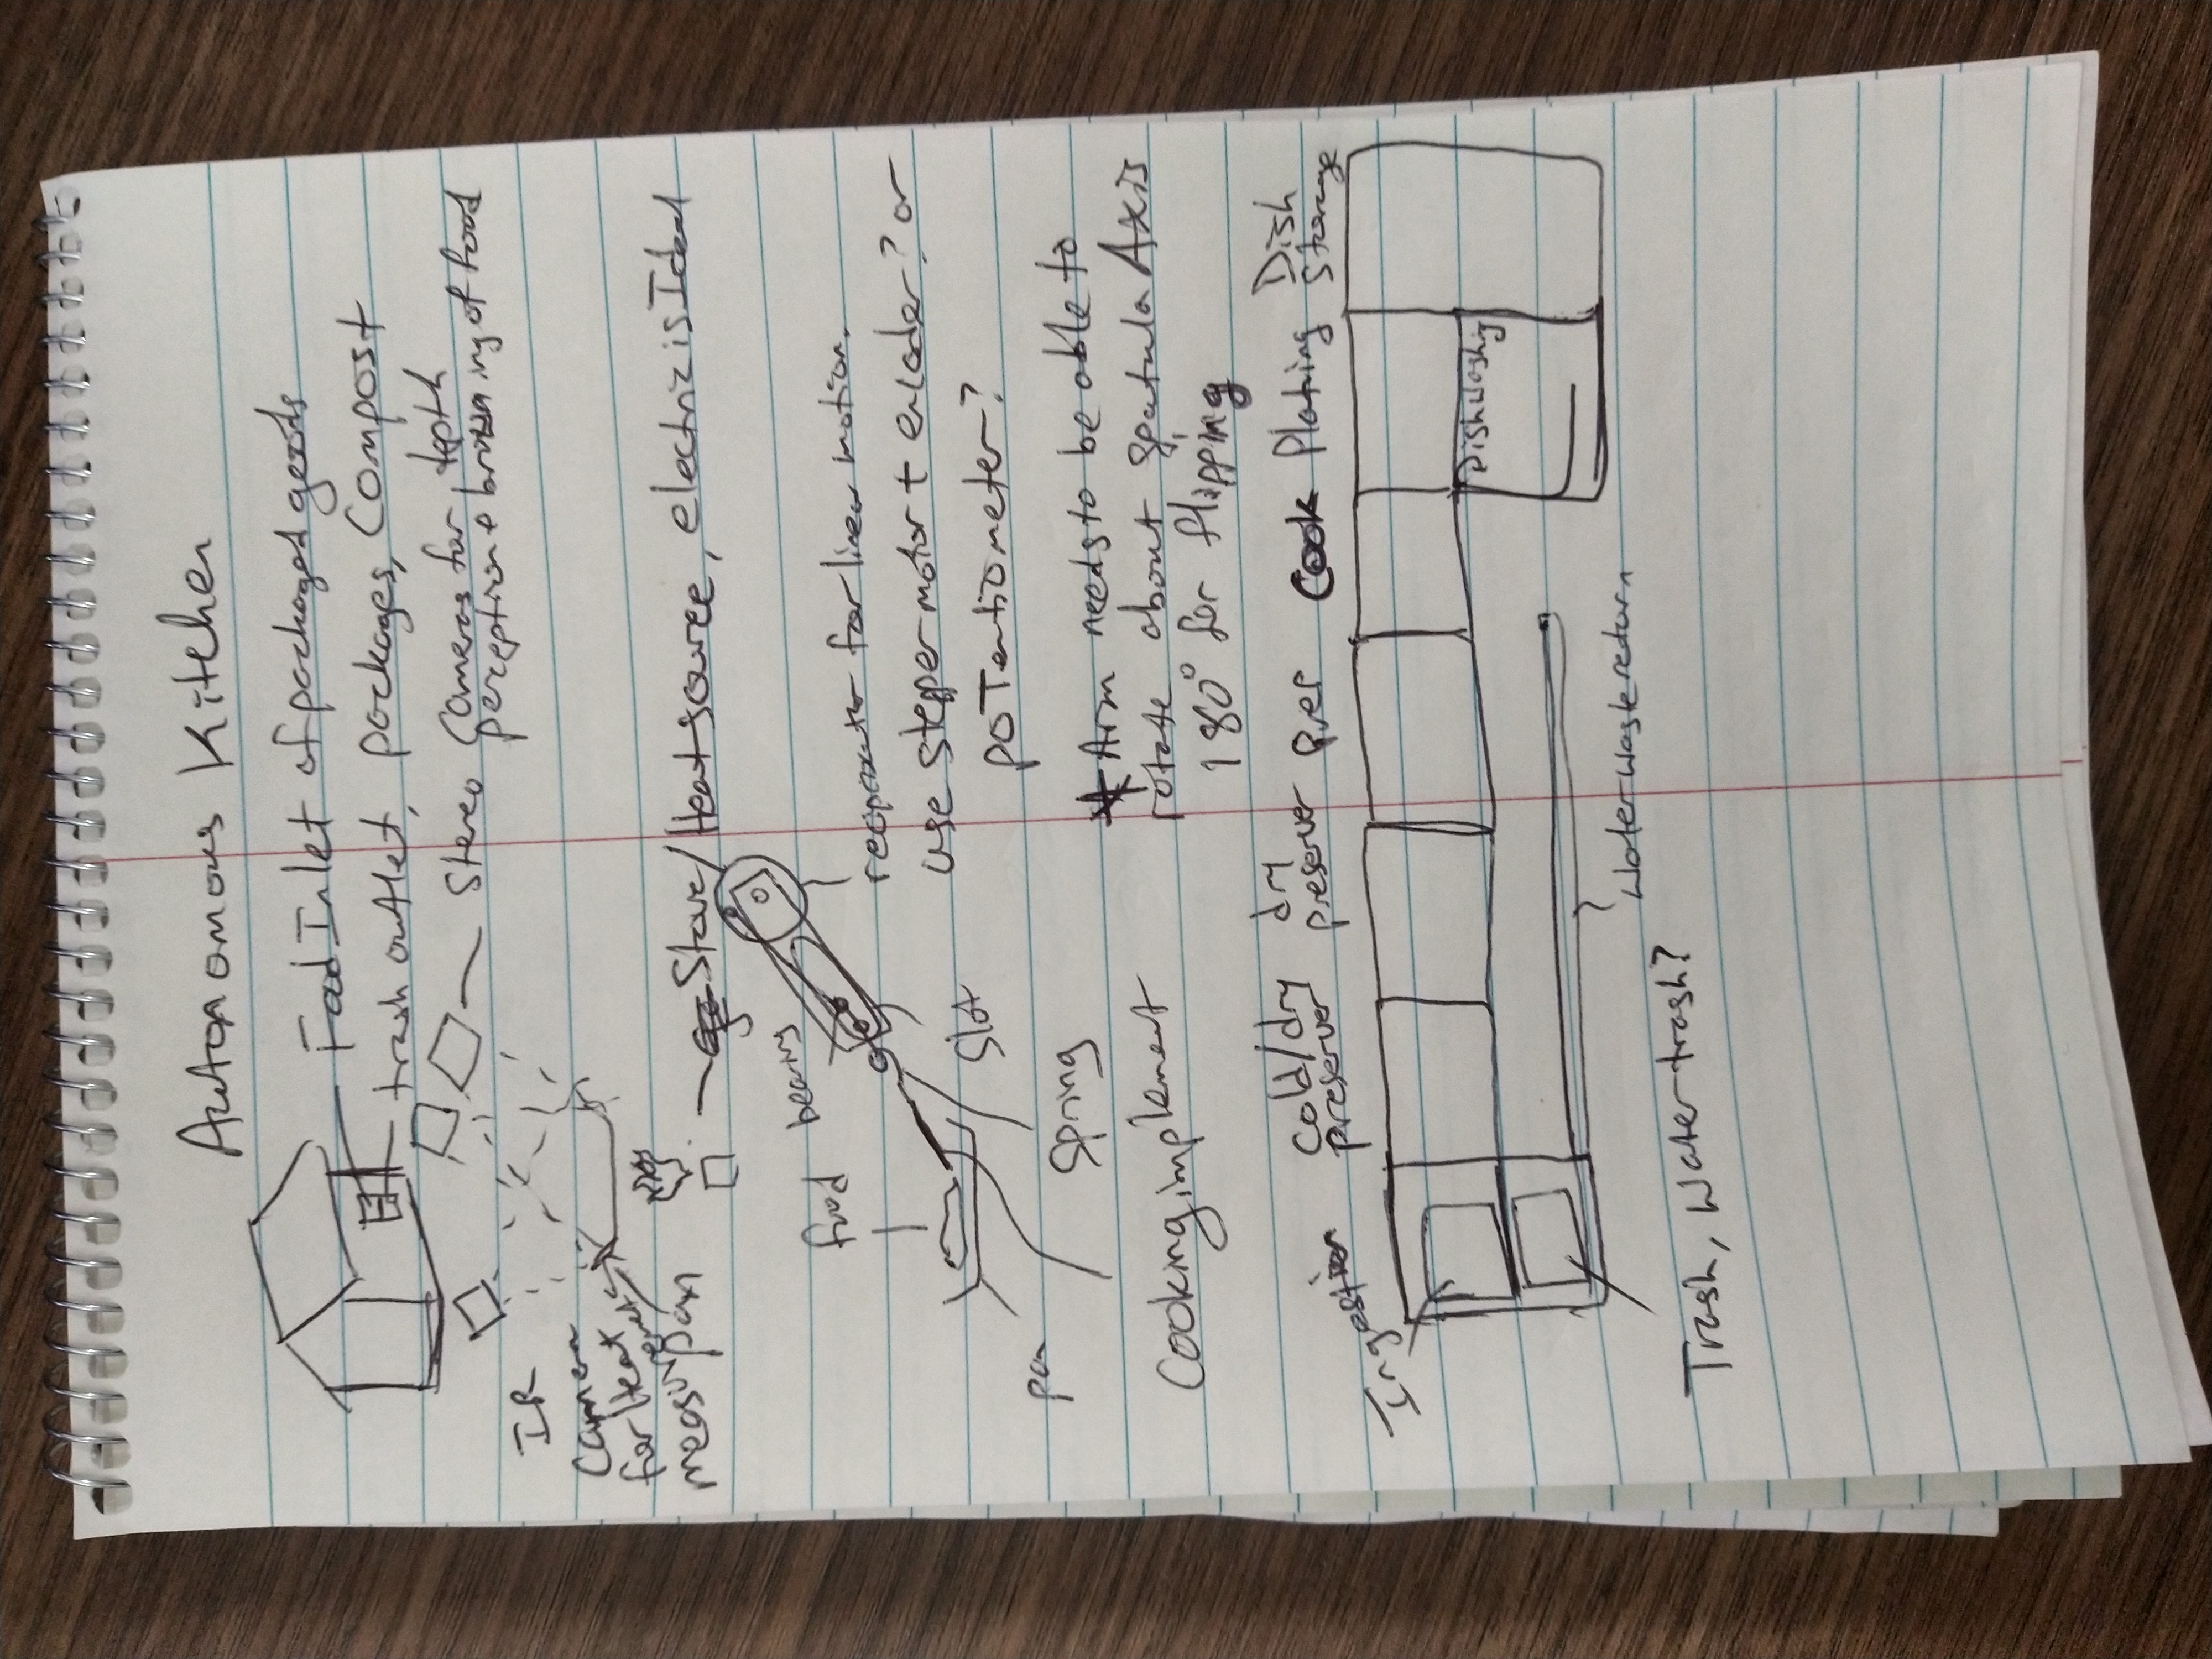 Autonomous Kitchen
Food Inlet of packaged goods
trash outlet, packages, Compost
Stereo Cameras for depth
perception + browning of food
IR
Camera
for Heat
measurement
pan
Stove/Heat source, electric is Ideal
food
bearing
reciprocator for linear motion.
use stepper motor + encoder? or
poTentiometer?
slot
pan
spring
Cooking implement
* Arm needs to be able to
rotate about spatula Axis
180° for flipping
Ingestion
cold/dry
preserver
dry
preserver
Prep
Cook
Plating
Dish
Storage
Dishwashing
Water waste return
Trash, Water trash?